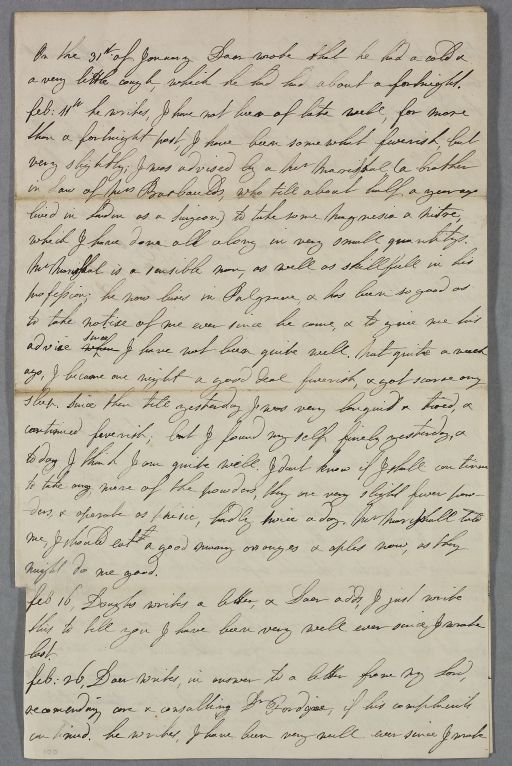 On the 31st of January Daer wrote that he had a cold &
a very little cough, which he had had about a fortnight.
feb: 11th he writes, I have not been of late well, for more
than a fortnight past, I have been somewhat feverish, but
very slightly; I was advised by a Mr Marishal (a brother
in law of Mrs Barbaulds, who till about half a year ago
lived in London as a surgeon) to take some magnesia & nitre,
which I have done all along in very small quantitys.
Mr Marishal is a sensible man, as well as skillfull in his
profession; he now lives in Palgrave, & has been so good as
to take notice of me ever since he came, & to give me his
advice when since I have not been quite well, not quite a week
ago, I became one night a good deal feverish, & got scarce any
sleep. since then till yesterday I was very languid & tired, &
continued feverish; but I found my self finely yesterday, &
today I think I am quite well. I dont know if I shall continue
to take any more of the powders, they are very slight fever pow-
ders, & operate as physic, hardly twice a day. Mr Marishall told
me, I should eat a good many oranges & aples now, as they
might do me good.
feb 16, Douglas writes a letter, & Daer adds, I just write
this to tell you I have been very well ever since I wrote
last.
feb: 26, Daer writes, in answer to a letter from my Lord,
recomending care & consulting Dr Fordyce, if his complaints
continued. he writes, I have been very well ever since I wrote